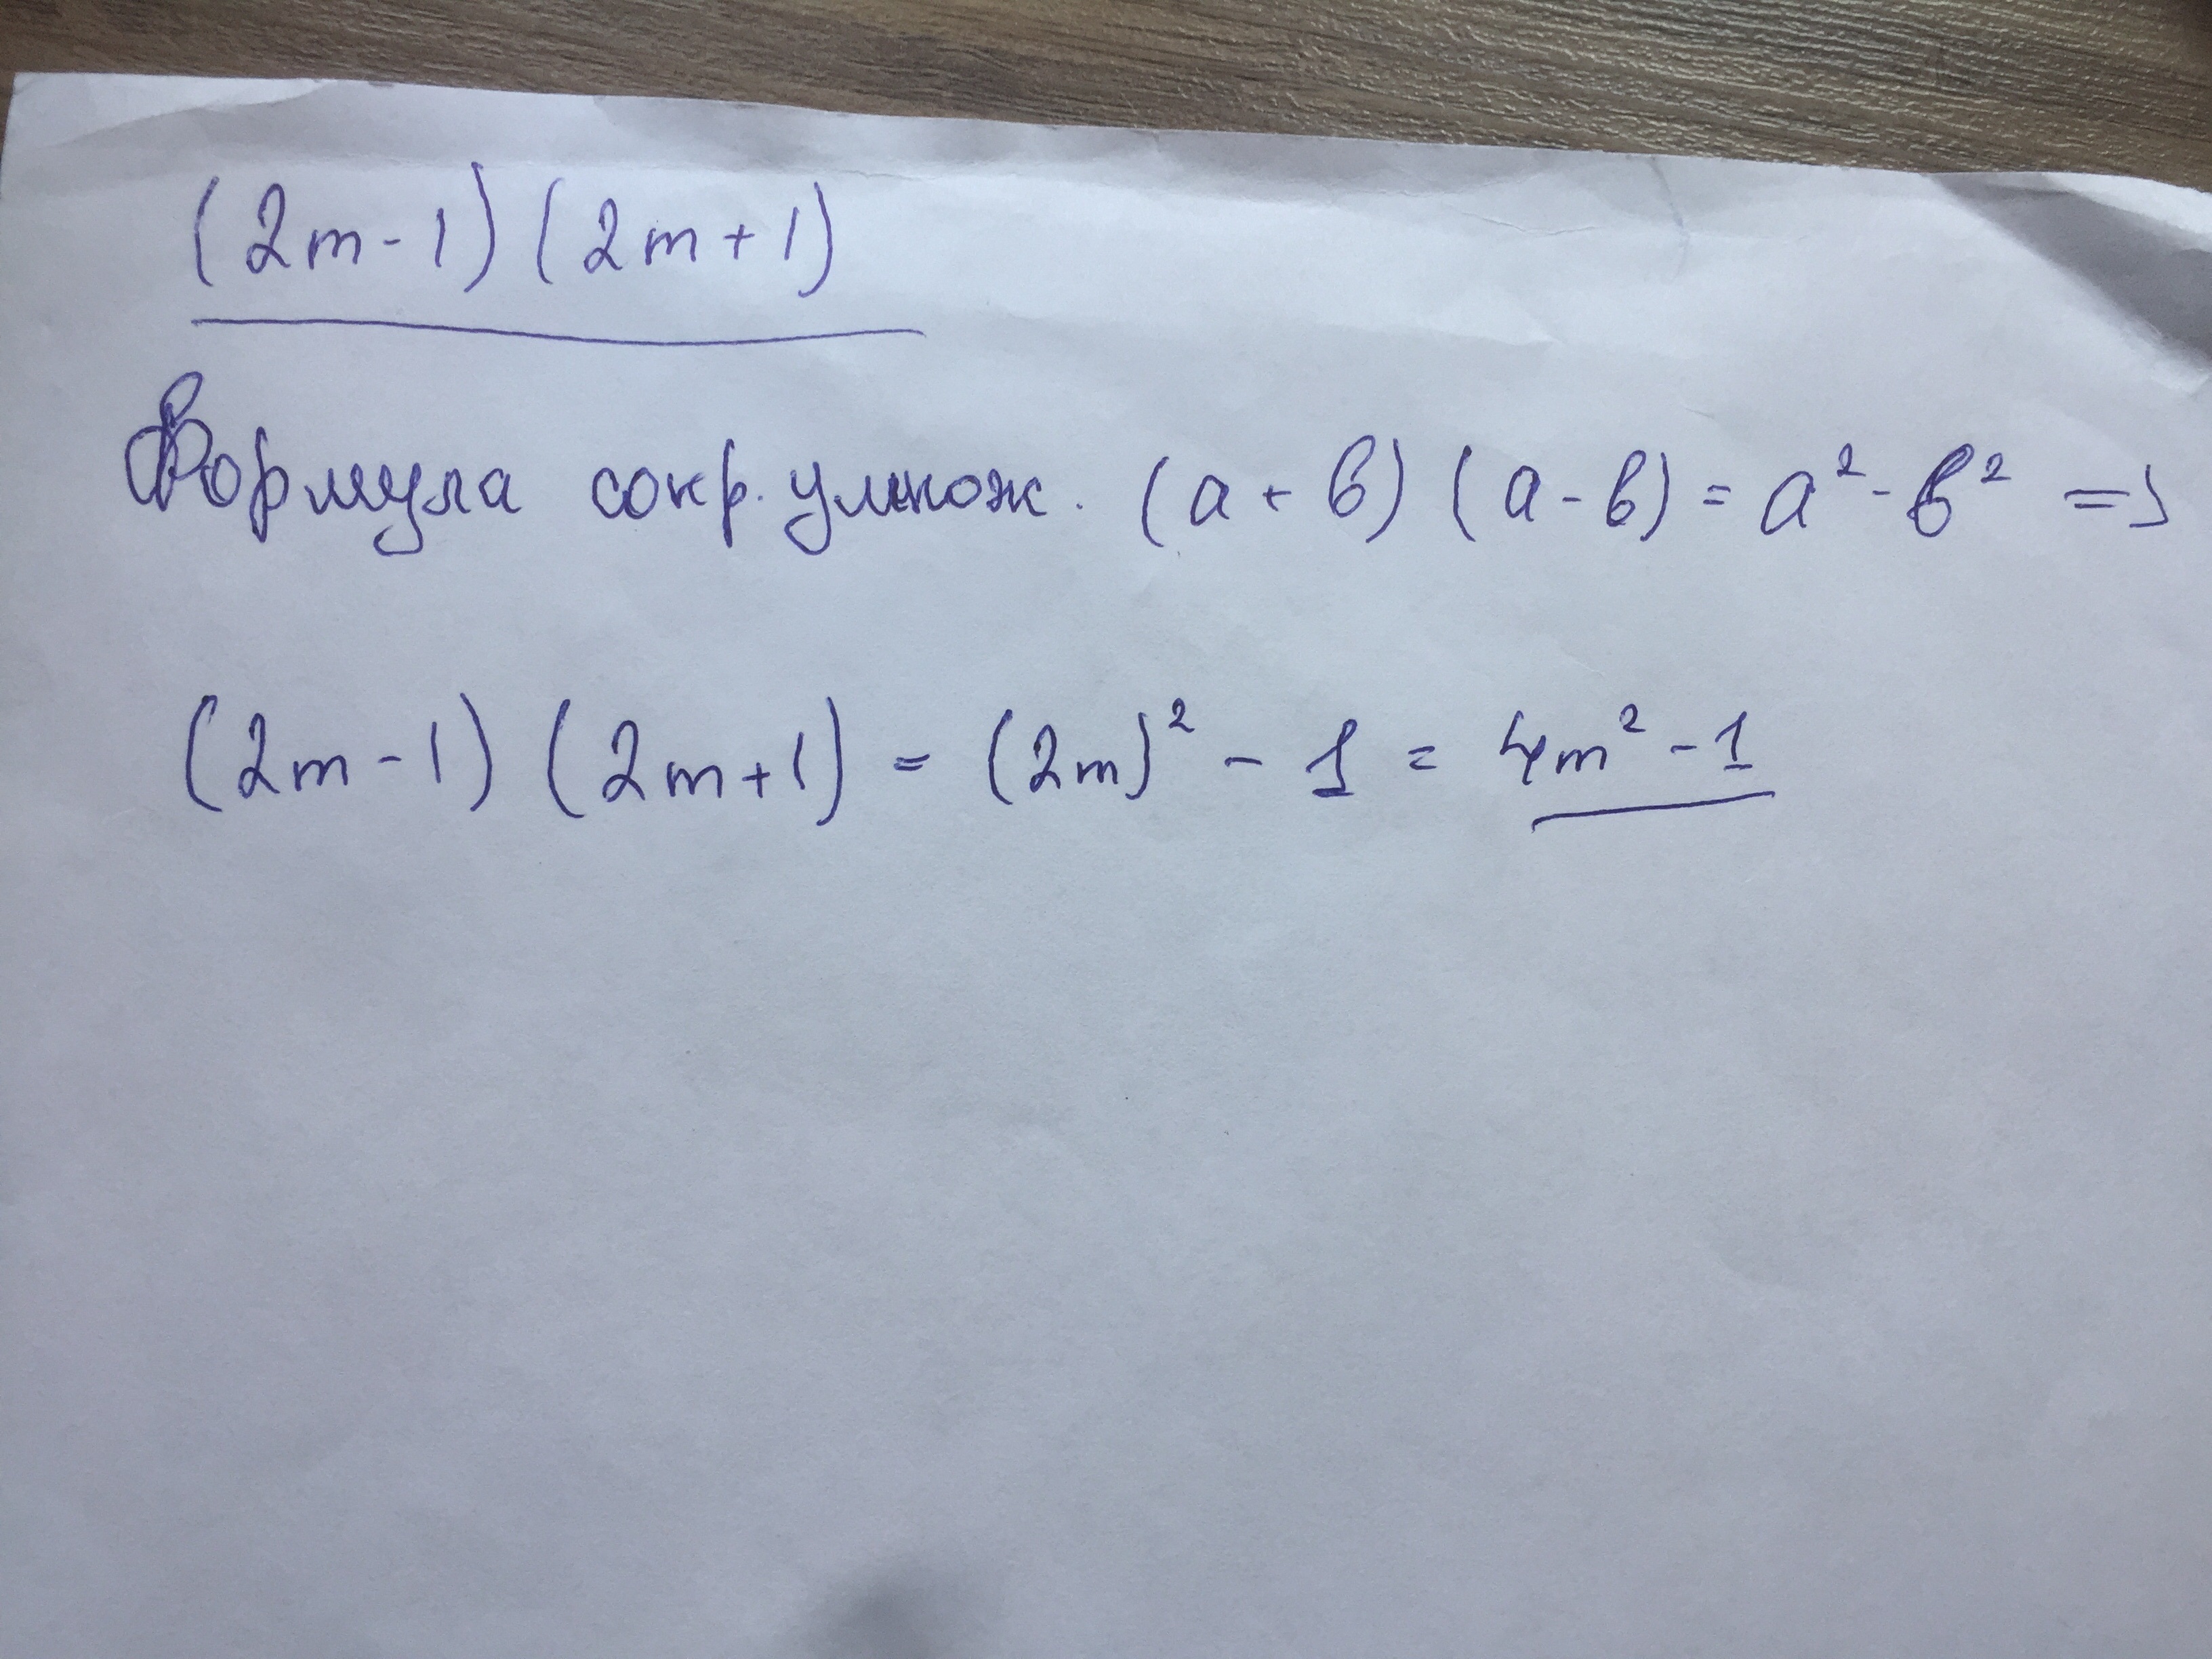 (2m-1)(2m+1)
Формула сокр. умнож. (а+в)(а-в)=а²-в² =>
(2m-1)(2m+1) = (2m)² - 1 = 4m² - 1